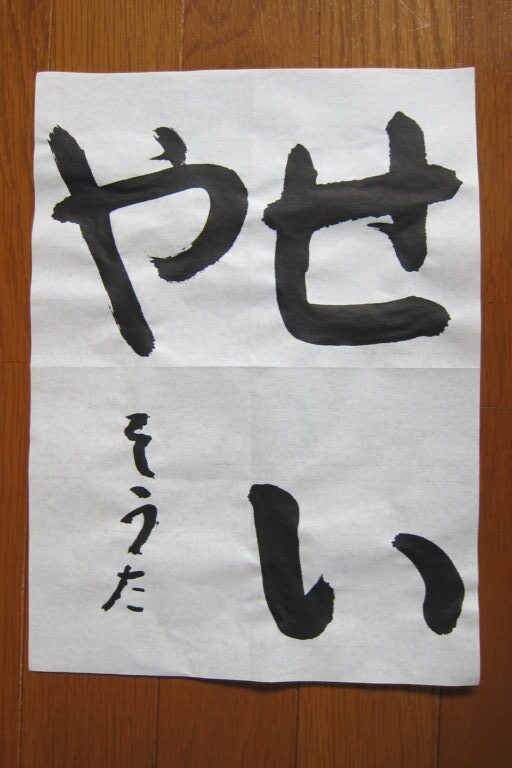 せい
や
そうた